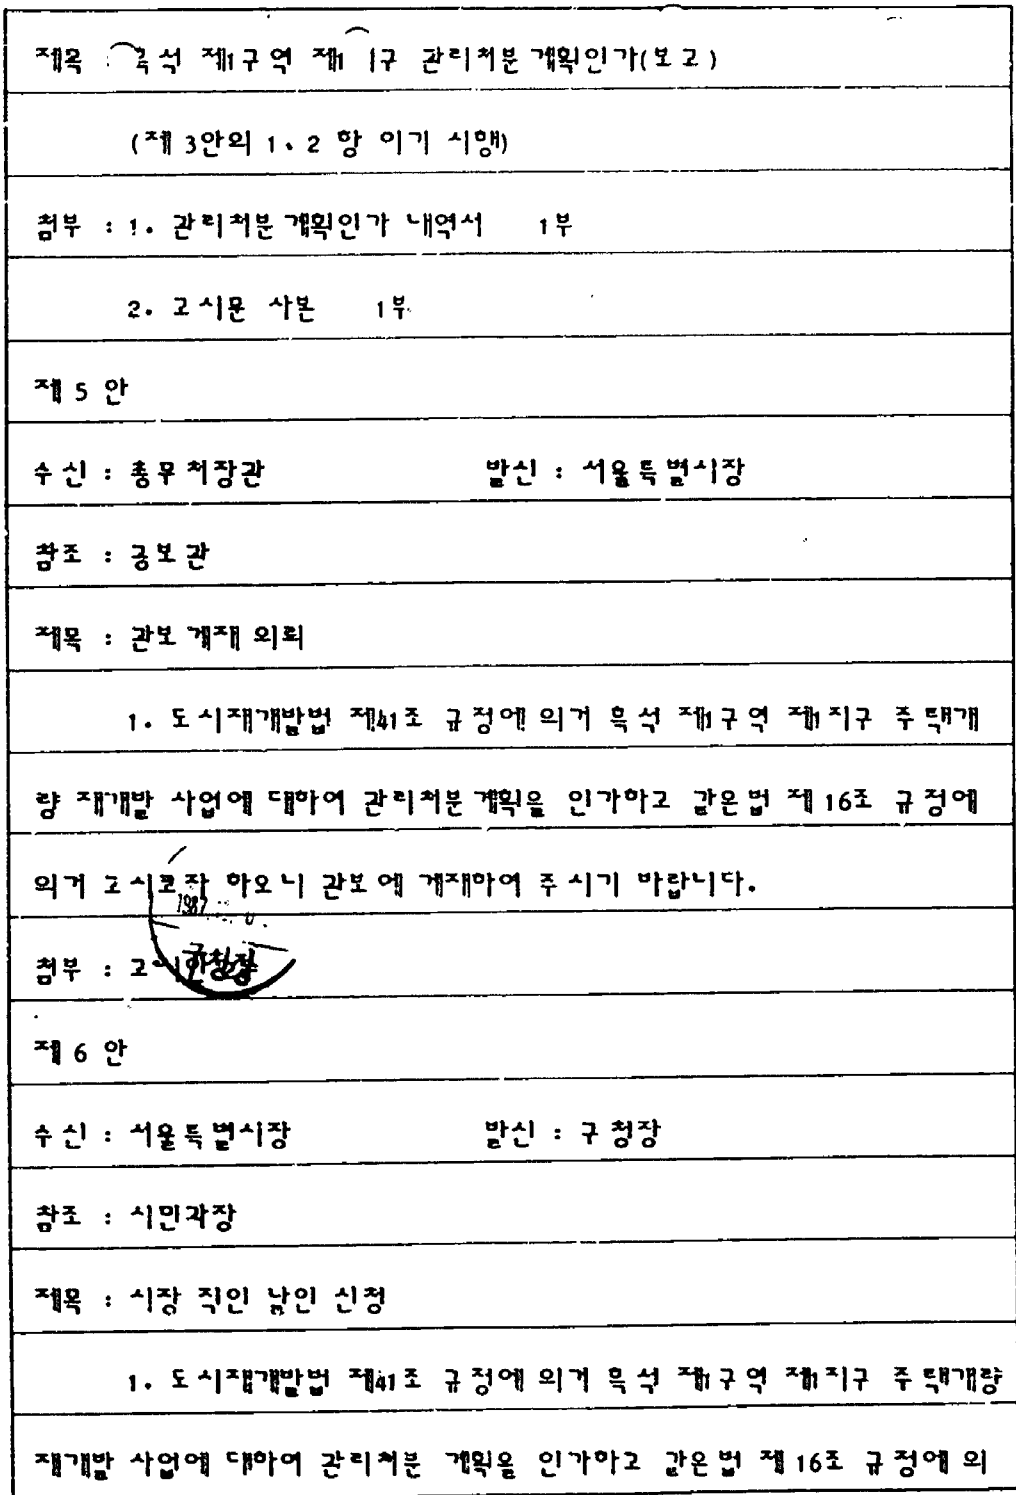 제목 : 흑석 제1구역 제1 지구 관리처분 계획인가(보고)
(제 3안의 1. 2 항 이기 시행)
첨부 : 1. 관리처분 계획인가 내역서 1부
2. 고시문 사본 1부
제 5 안
수신 : 총무처장관 발신 : 서울특별시장
참조 : 공보관
제목 : 관보 게재 의뢰
1. 도시재개발법 제41조 규정에 의거 흑석 제1구역 제1지구 주택개
량 재개발 사업에 대하여 관리처분 계획을 인가하고 같은법 제 16조 규정에
의거 고시코자 하오니 관보에 게재하여 주시기 바랍니다.
1987
첨부 : 고시
구청장
제 6 안
수신 : 서울특별시장 발신 : 구청장
참조 : 시민과장
제목 : 시장 직인 날인 신청
1. 도시재개발법 제41조 규정에 의거 흑석 제1구역 제1지구 주택개량
재개발 사업에 대하여 관리처분 계획을 인가하고 같은법 제 16조 규정에 의